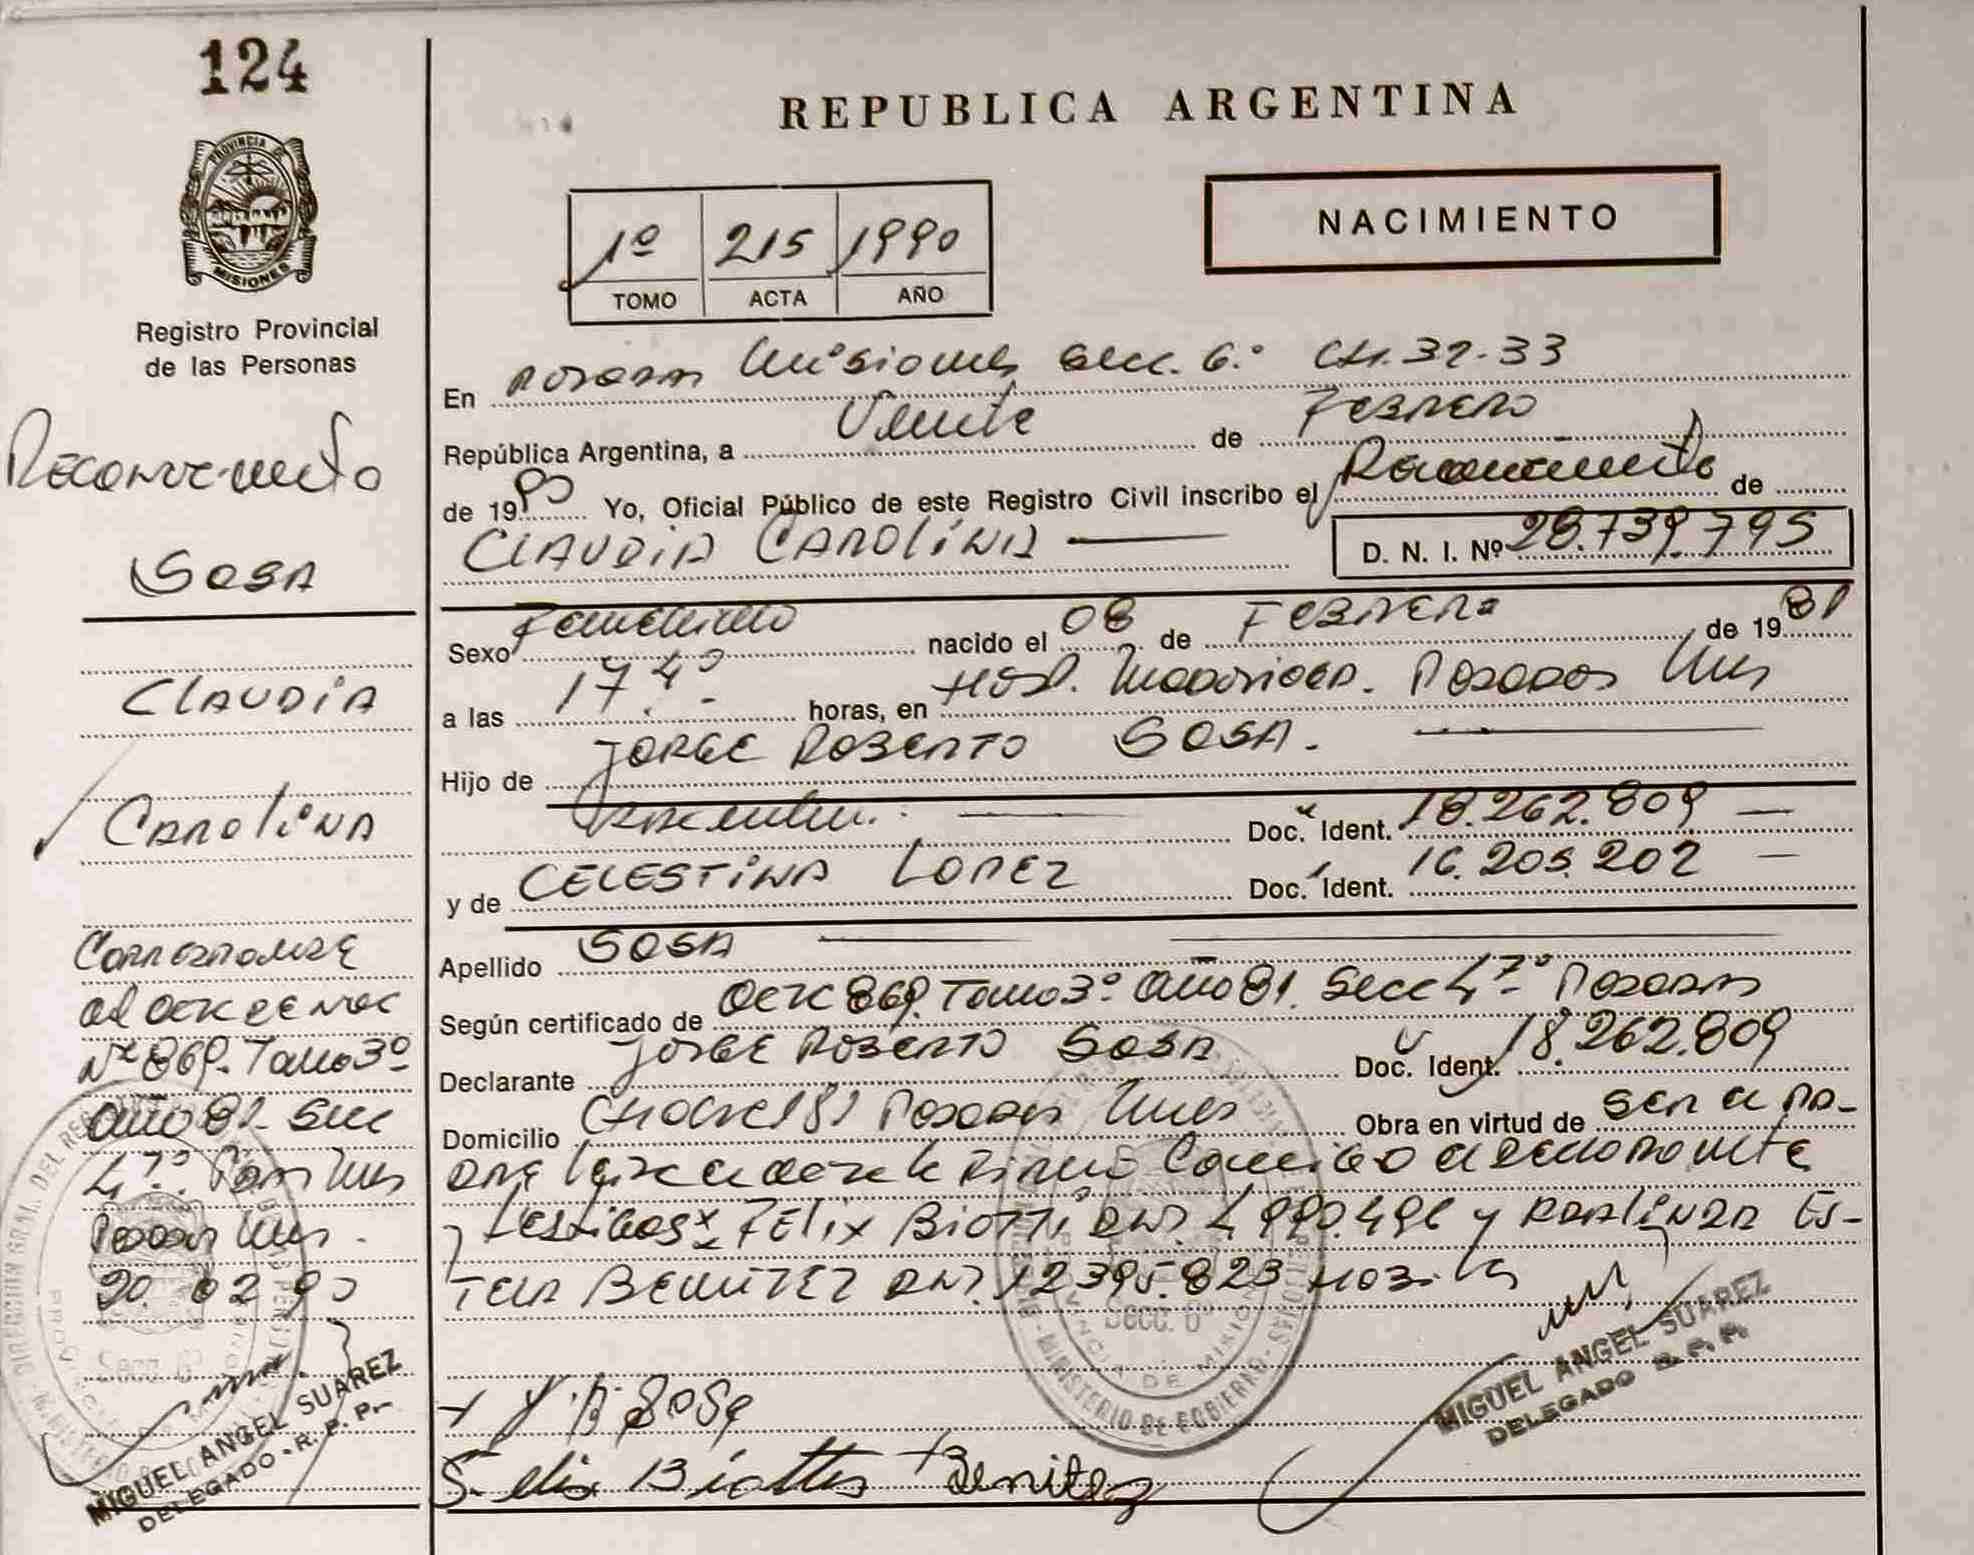 124
PROVINCIA DE
MISIONES
Registro Provincial
de las Personas
Reconocimiento
SOSA
CLAUDIA
CAROLINA
Corresponde
al acta de nac
Nº 869. Tomo 3º
año 81. Secc
Posadas Mnes.
20. 02 90
MIGUEL ANGEL SUAREZ
DELEGADO - R. P. P.
REPUBLICA ARGENTINA
1º 215 1990
TOMO ACTA AÑO
NACIMIENTO
En Posadas Misiones Secc. 6.ª CH. 32-33
República Argentina, a Veinte de FEBRERO
de 1990 Yo, Oficial Público de este Registro Civil inscribo el Reconocimiento de
CLAUDIA CAROLINA D. N. I. Nº 28.739.795
Sexo Femenino nacido el 08 de FEBRERO de 1981
a las 17 horas, en Hosp. Madariaga. Posadas Mnes
Hijo de JORGE ROBERTO SOSA.
Argentino. Doc. Ident. 18.262.809
y de CELESTINA LOPEZ Doc. Ident. 16.205.202
Apellido SOSA
Según certificado de Acta 869. Tomo 3º Año 81. Secc 4ª Posadas
Declarante JORGE ROBERTO SOSA Doc. Ident. 18.262.809
Domicilio 181 Posadas Mnes Obra en virtud de ser el pa-
dre Leida el acta la firmó conmigo el declarante
y testigos FELIX BIOTTI DNI. 4 990.496 y ES-
TELA BENITEZ DNI. 12395.823
Secc. 6ª
MINISTERIO DE GOBIERNO
PROVINCIA DE MISIONES
J. R. Sosa
MIGUEL ANGEL SUAREZ
DELEGADO R. P. P.
Felix Biotti Benitez